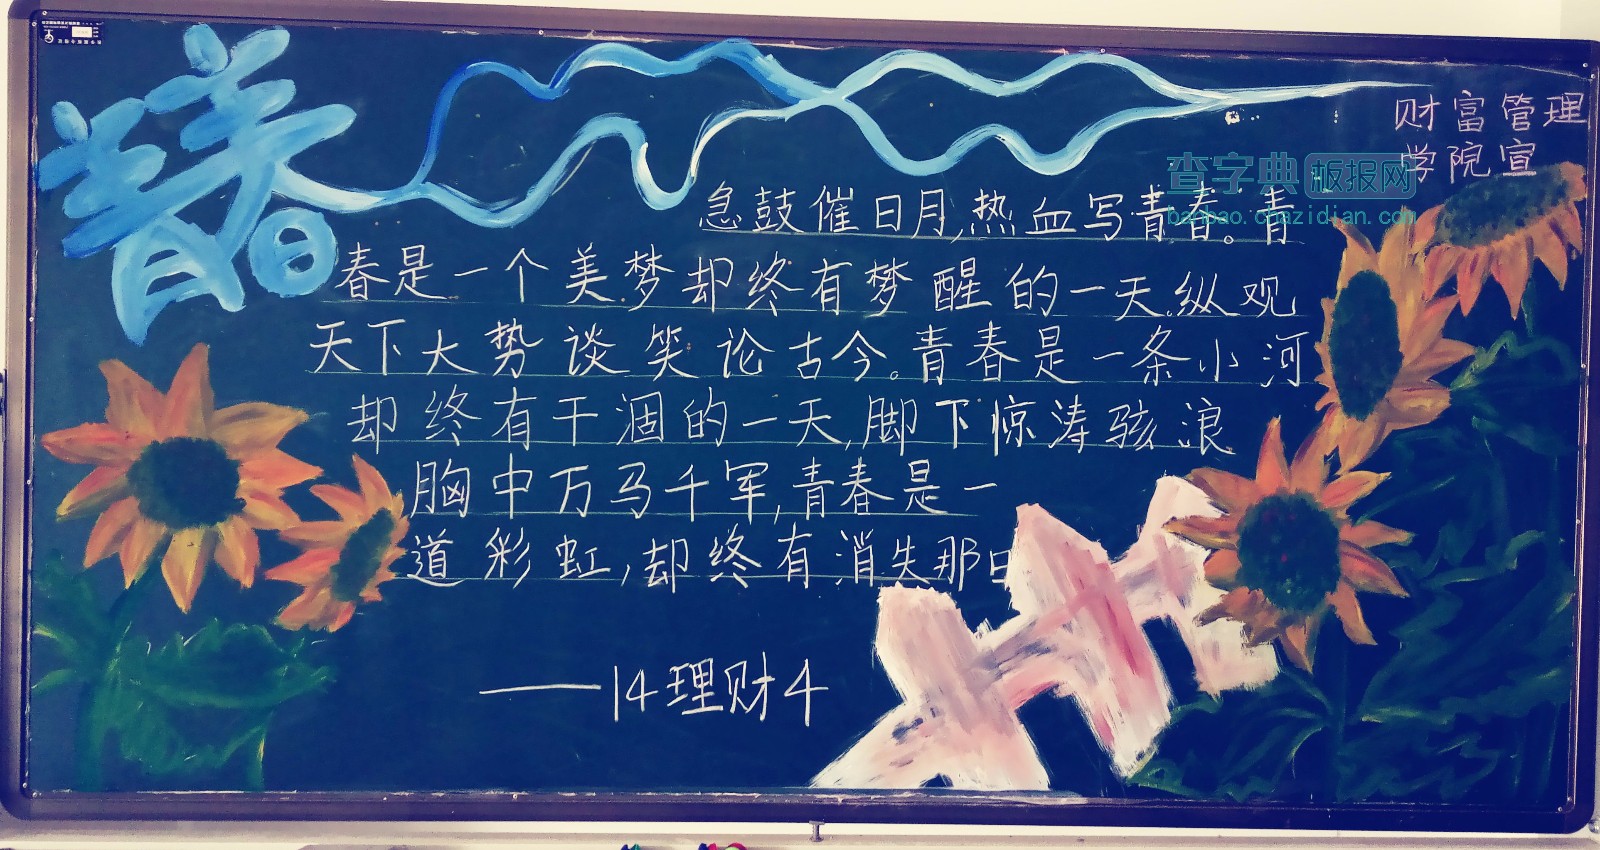 青春
财富管理
学院宣
查字典板报网
banbao.chazidian.com
急鼓催日月,热血写青春。青
春是一个美梦却终有梦醒的一天,纵观
天下大势谈笑论古今。青春是一条小河
却终有干涸的一天,脚下惊涛骇浪
胸中万马千军,青春是一
道彩虹,却终有消失那日
——14理财4